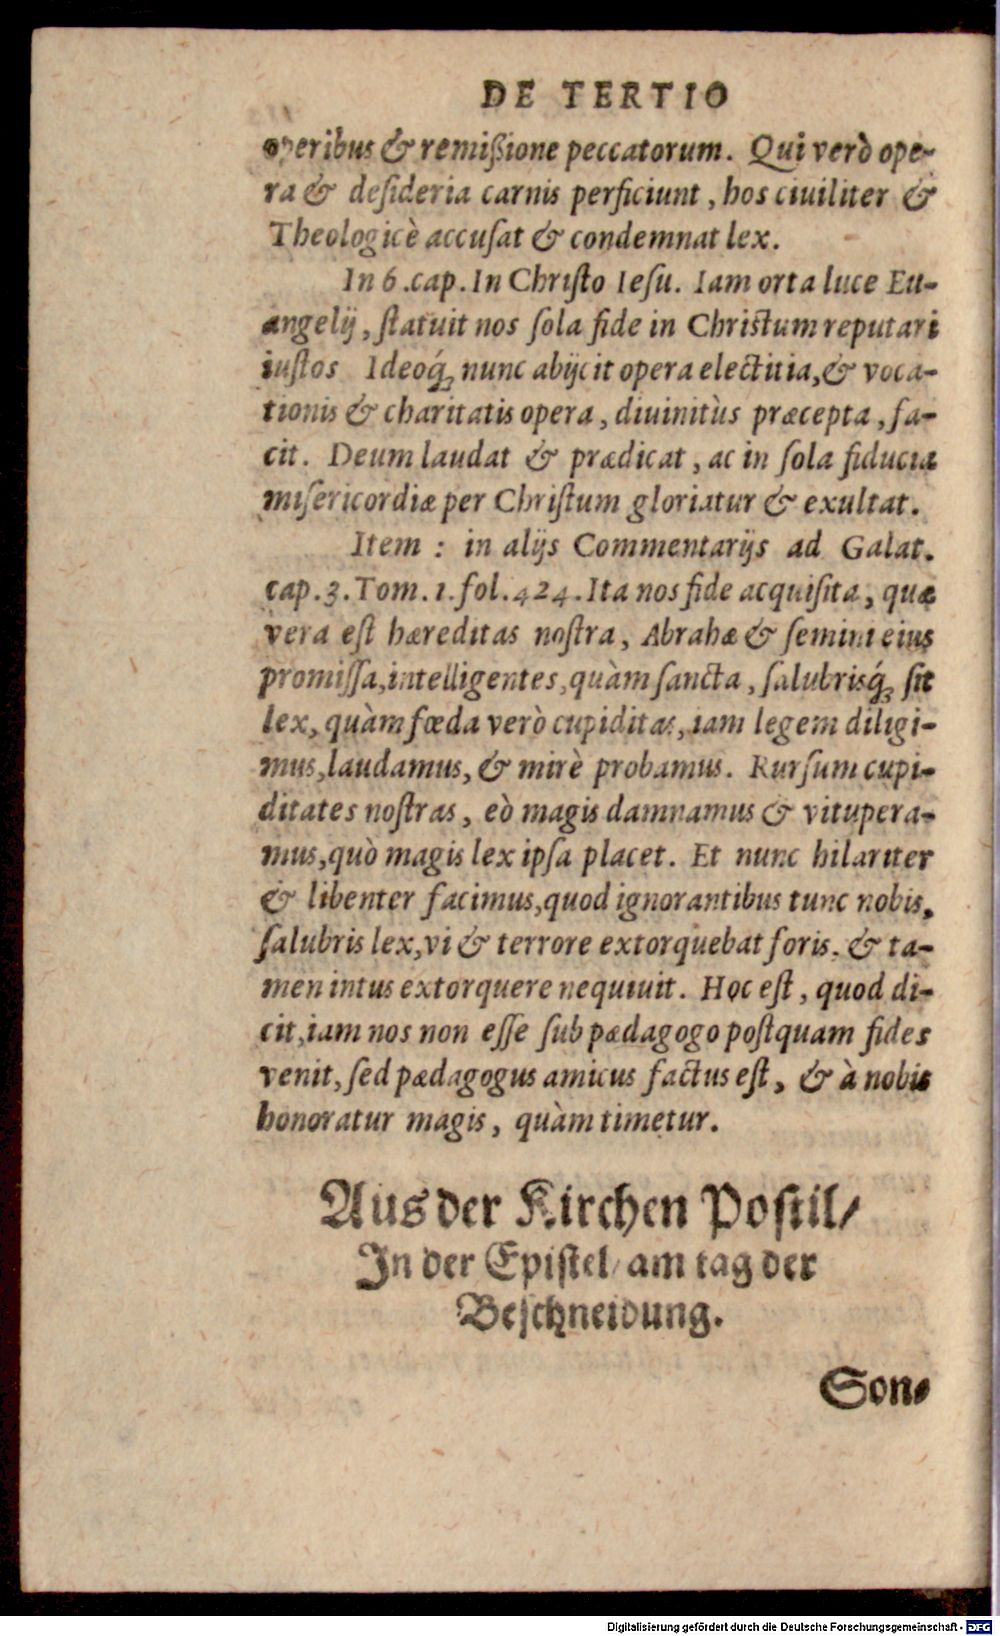 DE TERTIO
operibus & remißione peccatorum. Qui verò ope-
ra & deſideria carnis perficiunt, hos ciuiliter &
Theologicè accuſat & condemnat lex.
In 6. cap. In Chriſto Ieſu. Iam orta luce Eu-
angelij, ſtatuit nos ſola fide in Chriſtum reputari
iuſtos Ideoq́; nunc abijcit opera electitia, & voca-
tionis & charitatis opera, diuinitùs præcepta, fa-
cit. Deum laudat & prædicat, ac in ſola fiducia
miſericordiæ per Chriſtum gloriatur & exultat.
Item : in alijs Commentarijs ad Galat.
cap. 3. Tom. 1. fol. 424. Ita nos fide acquiſita, quæ
vera eſt hæreditas noſtra, Abrahæ & ſemini eius
promiſſa, intelligentes, quàm ſancta, ſalubrisq́; ſit
lex, quàm fœda verò cupiditas, iam legem diligi-
mus, laudamus, & mirè probamus. Rurſum cupi-
ditates noſtras, eò magis damnamus & vitupera-
mus, quò magis lex ipſa placet. Et nunc hilariter
& libenter facimus, quod ignorantibus tunc nobis,
ſalubris lex, vi & terrore extorquebat foris. & ta-
men intus extorquere nequiuit. Hoc eſt, quod di-
cit, iam nos non eſſe ſub pædagogo poſtquam fides
venit, ſed pædagogus amicus factus eſt, & à nobis
honoratur magis, quàm timetur.
Aus der Kirchen Poſtil/
In der Epiſtel/ am tag der
Beſchneidung.
Son-
Digitalisierung gefördert durch die Deutsche Forschungsgemeinschaft - DFG